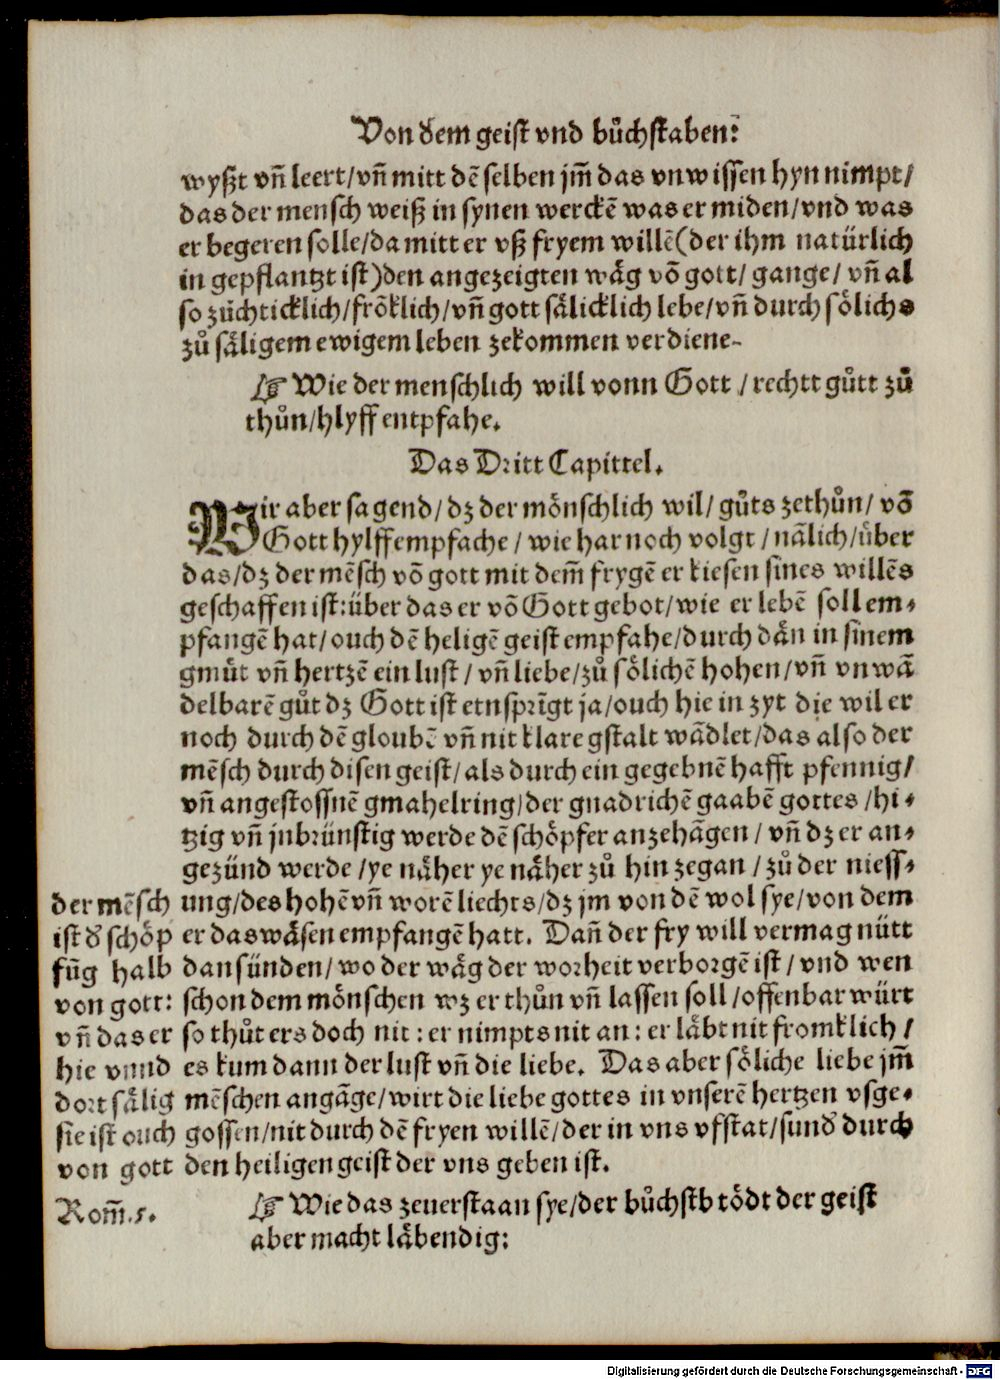 Von dem geist vnd bůchstaben:
wyßt vñ leert/vñ mitt dē selben jm̃ das vnwissen hyn nimpt/
das der mensch weiß in synen werckē was er miden/vnd was
er begeren solle/da mitt er vß fryem willē(der ihm natürlich
in gepflantzt ist)den angezeigten wäg võ gott/ gange/ vñ al
so züchticklich/frõklich/vñ gott sälicklich lebe/vñ durch sölichs
zů säligem ewigem leben zekommen verdiene-
☞ Wie der menschlich will vonn Gott / rechtt gůtt zů
thůn/hlyff entpfahe.
Das Dritt Capittel.
Wir aber sagend/ dz der mönschlich wil/ gůts zethůn/ võ
Gott hylff empfache / wie har noch volgt / nãlich/über
das/dz der mēsch võ gott mit dem̃ frygē erkiesen sines willēs
geschaffen ist:über das er võ Gott gebot/wie er lebē soll em⸗
pfangē hat/ouch dē heligē geist empfahe/durch dän in sinem
gmüt vñ hertzē ein lust / vñ liebe/zů sölichē hohen/vñ vnwã
delbarē gůt dz Gott ist etnsprīgt ja/ouch hie in zyt die wil er
noch durch dē gloubē vñ nit klare gstalt wãdlet/das also der
mēsch durch disen geist/als durch ein gegebnē hafft pfennig/
vñ angestossnē gmahelring/der gnadrichē gaabē gottes /hi⸗
tzig vñ jnbrünstig werde dē schöpfer anzehãgen/ vñ dz er an⸗
gezünd werde /ye näher ye näher zů hin zegan / zů der niess⸗
ung/des hohē vñ worē liechts/dz jm von dē wol sye/von dem
er das wäsen empfangē hatt. Dañ der fry will vermag nütt
dan sünden/wo der wäg der worheit verborgē ist / vnd wen
schon dem mönschen wz er thůn vñ lassen soll /offenbar würt
so thůt ers doch nit : er nimpts nit an: er läbt nit fromklich /
es kum dann der lust vñ die liebe. Das aber söliche liebe jm̃
mēschen angãge/wirt die liebe gottes in vnserē hertzen vsge⸗
gossen/nit durch dē fryen willē/der in vns vfstat/sund̕ durch
den heiligen geist der vns geben ist.
der mēsch
ist d̕ schöp
fũg halb
von gott:
vñ das er
hie vnnd
dort sälig
sie ist ouch
von gott
Rom̃.5.
☞ Wie das zeuerstaan sye/der bůchstb tödt der geist
aber macht läbendig:
Digitalisierung gefördert durch die Deutsche Forschungsgemeinschaft - DFG